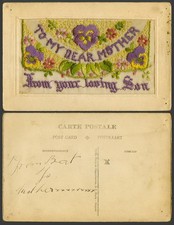 TO MY DEAR MOTHER
From your loving Son
CARTE POSTALE
from Bert
to